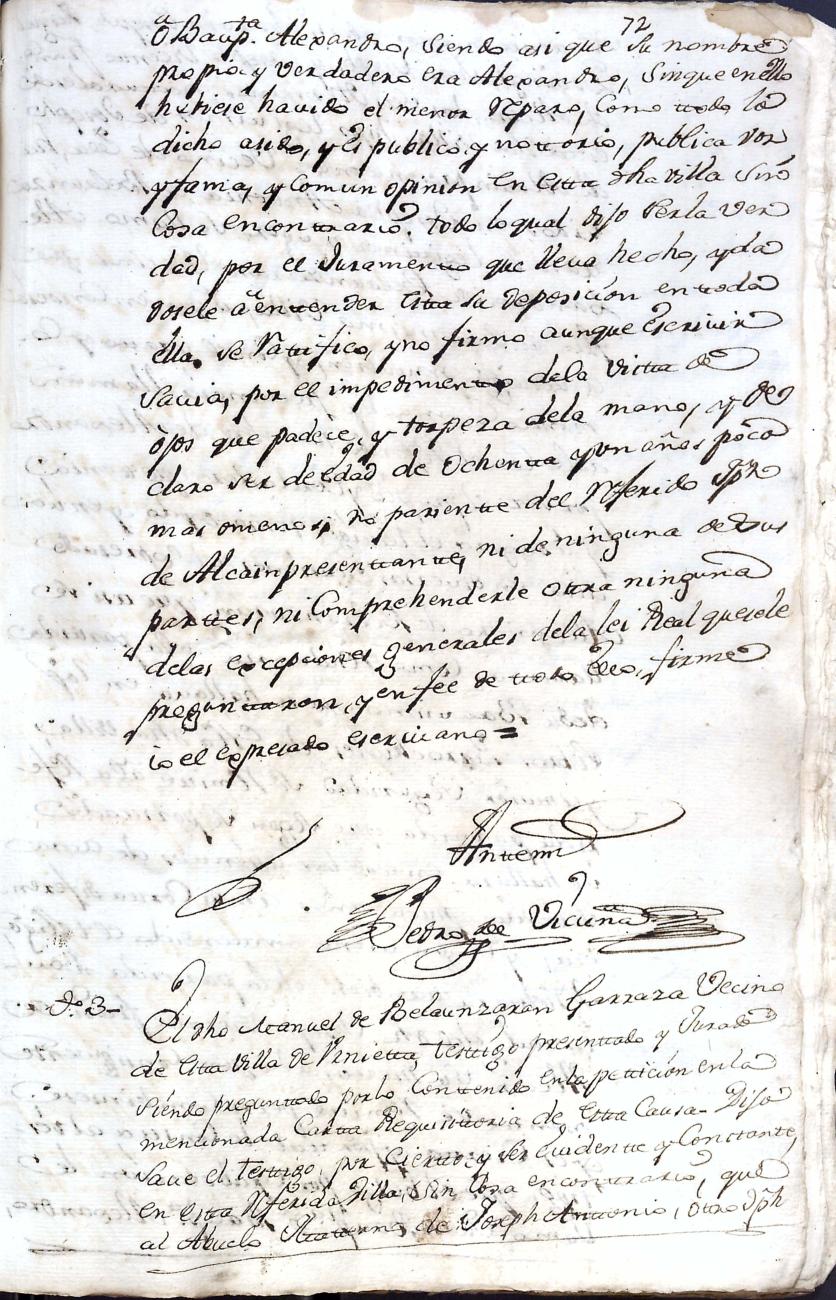 72
ó Baup.ta Alexandro, siendo asi que su nombre
propio y verdadero era Alexandro, sin que en ello
hubiese havido el menor reparo, como ttodo lo
dicho asido, y es publico y nottorio, publica voz
y fama, y comun opinion en estta dha villa sin
cosa en conttrario. todo lo qual dijo ser la ver
dad, por el Juramentto que lleva hecho, y da
dosele a enttender estta su deposición en ttoda
ella, se rattifico, y no firmo aunque escrivir
savia, por el impedimentto dela vistta de
ojos que padece, y torpeza dela mano, y de
claro ser de edad de ochentta y un años poco
mas o menos, no parientte del referido Jph
de Alcain presenttantte, ni de ninguna de sus
parttes, ni Comprehenderle ottra ninguna
delas excepciones generales dela lei Real que sele
preguntaron, y en fée de ttodo ello, firme
io el expresado escrivano =
Antemi
Pedro de Vicuña
tº 3-
El dho Manuel de Belaunzaran Garraza Vecino
de estta villa de Vrnietta, testtigo presenttado y Jurado
siendo preguntado por lo Conttenido en la petticion en la
mencionada Cartta Requisittoria de estta Causa- Dijo
save el testtigo, por cierto, y ser evidentte y Constante,
en estta referida Villa, sin cosa en conttrario, que
al Abuelo Matterno de Joseph Anttonio, ottro Jph